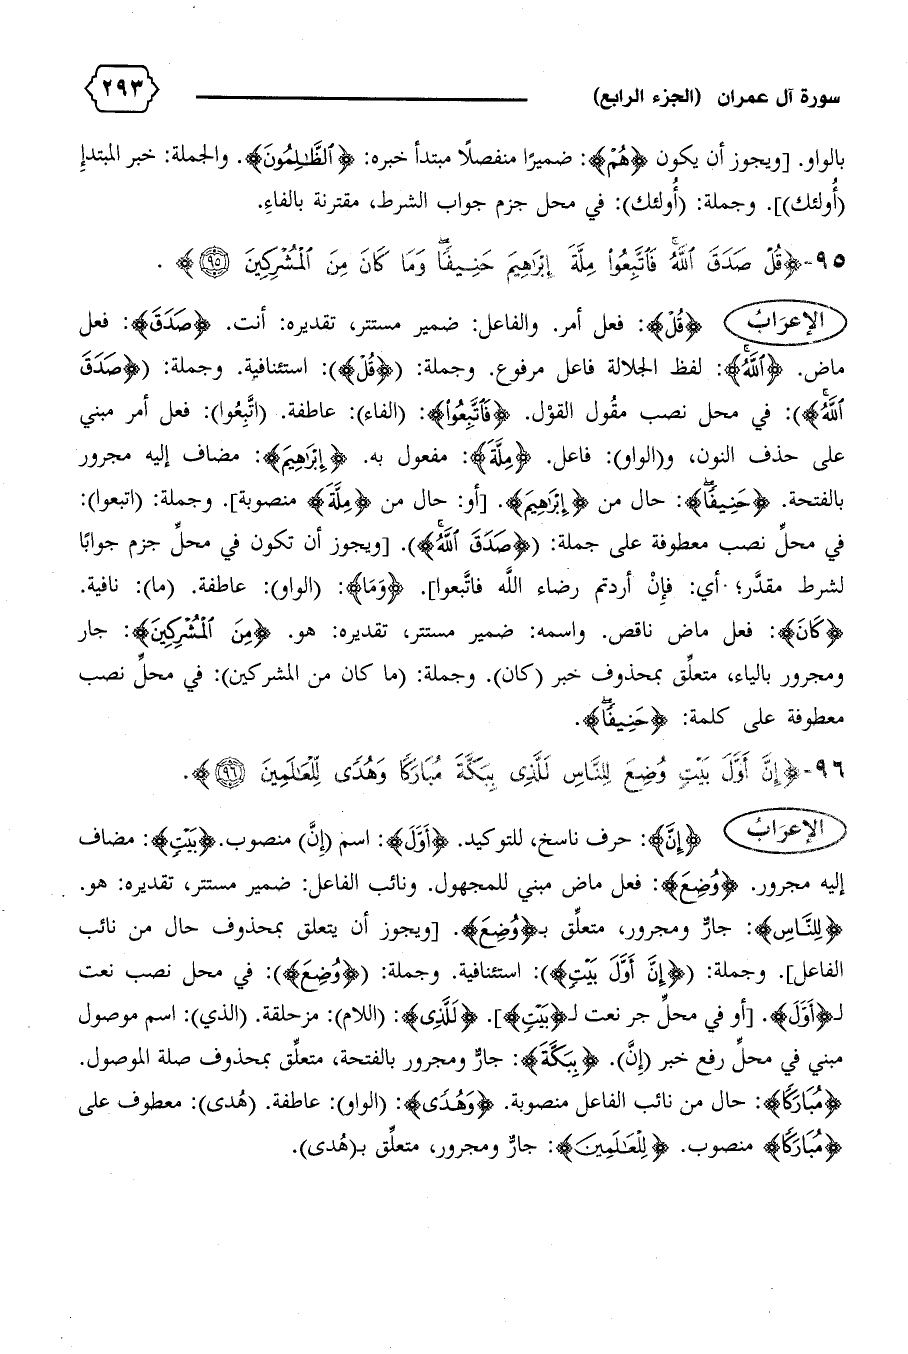 سورة آل عمران (الجزء الرابع) ٢٩٣
بالواو. [ويجوز أن يكون ﴿هُمُ﴾: ضميرًا منفصلًا مبتدأ خبره: ﴿ٱلظَّٰلِمُونَ﴾. والجملة: خبر المبتدإ
(أُولئك)]. وجملة: (أُولئك): في محل جزم جواب الشرط، مقترنة بالفاءِ.
٩٥-﴿قُلۡ صَدَقَ ٱللَّهُۗ فَٱتَّبِعُواْ مِلَّةَ إِبۡرَٰهِيمَ حَنِيفٗاۖ وَمَا كَانَ مِنَ ٱلۡمُشۡرِكِينَ ٩٥﴾ .
الإعرَابُ ﴿قُلۡ﴾: فعل أمر. والفاعل: ضمير مستتر، تقديره: أنت. ﴿صَدَقَ﴾: فعل
ماض. ﴿ٱللَّهُۗ﴾: لفظ الجلالة فاعل مرفوع. وجملة: (﴿قُلۡ﴾): استئنافية. وجملة: (﴿صَدَقَ
ٱللَّهُۗ﴾): في محل نصب مقُول القوْل. ﴿فَٱتَّبِعُواْ﴾: (الفاء): عاطفة. (اتَّبِعُوا): فعل أمر مبني
على حذف النون، و(الواو): فاعل. ﴿مِلَّةَ﴾: مفعول به. ﴿إِبۡرَٰهِيمَ﴾: مضاف إليه مجرور
بالفتحة. ﴿حَنِيفٗاۖ﴾: حال من ﴿إِبۡرَٰهِيمَ﴾. [أو: حال من ﴿مِلَّةَ﴾ منصوبة]. وجملة: (اتبعوا):
في محلِّ نصب معطوفة على جملة: (﴿صَدَقَ ٱللَّهُۗ﴾). [ويجوز أن تكون في محلِّ جزم جوابًا
لشرط مقدَّر؛ أي: فإنْ أردتم رضاء اللَّه فاتَّبعوا]. ﴿وَمَا﴾: (الواو): عاطفة. (ما): نافية.
﴿كَانَ﴾: فعل ماض ناقص. واسمه: ضمير مستتر، تقديره: هو. ﴿مِنَ ٱلۡمُشۡرِكِينَ﴾: جار
ومجرور بالياء، متعلِّق بمحذوف خبر (كان). وجملة: (ما كان من المشركين): في محلِّ نصب
معطوفة على كلمة: ﴿حَنِيفٗاۖ﴾.
٩٦-﴿إِنَّ أَوَّلَ بَيۡتٖ وُضِعَ لِلنَّاسِ لَلَّذِي بِبَكَّةَ مُبَارَكٗا وَهُدٗى لِّلۡعَٰلَمِينَ ٩٦﴾.
الإعرَابُ ﴿إِنَّ﴾: حرف ناسخ، للتوكيد. ﴿أَوَّلَ﴾: اسم (إنَّ) منصوب.﴿بَيۡتٖ﴾: مضاف
إليه مجرور. ﴿وُضِعَ﴾: فعل ماض مبني للمجهول. ونائب الفاعل: ضمير مستتر، تقديره: هو.
﴿لِلنَّاسِ﴾: جارٌّ ومجرور، متعلِّق بـ﴿وُضِعَ﴾. [ويجوز أن يتعلق بمحذوف حال من نائب
الفاعل]. وجملة: (﴿إِنَّ أَوَّلَ بَيۡتٖ﴾): استئنافية. وجملة: (﴿وُضِعَ﴾): في محل نصب نعت
لـ﴿أَوَّلَ﴾. [أو في محلِّ جر نعت لـ﴿بَيۡتٖ﴾]. ﴿لَلَّذِي﴾: (اللام): مزحلقة. (الذي): اسم موصول
مبني في محلِّ رفع خبر (إنَّ). ﴿بِبَكَّةَ﴾: جارٌّ ومجرور بالفتحة، متعلِّق بمحذوف صلة الموصول.
﴿مُبَارَكٗا﴾: حال من نائب الفاعل منصوبة. ﴿وَهُدٗى﴾: (الواو): عاطفة. (هُدى): معطوف على
﴿مُبَارَكٗا﴾ منصوب. ﴿لِّلۡعَٰلَمِينَ﴾: جارٌّ ومجرور، متعلِّق بـ(هُدى).